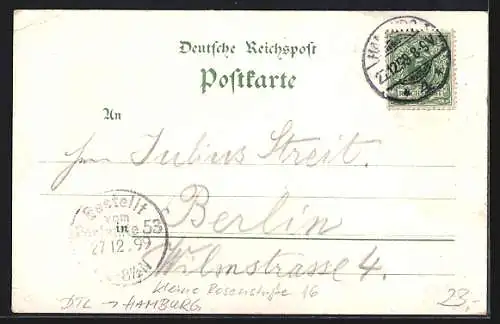 Deutsche Reichspost
Postkarte
An
Julius Streit.
in Berlin
Wilmstrasse 4.
Bestellt
vom
Postamte 55
27.12.99
HAMBURG
27.12.99 8-9V.
* 1 *
Kleine Rosenstraße 16
DTL → HAMBURG
23,-